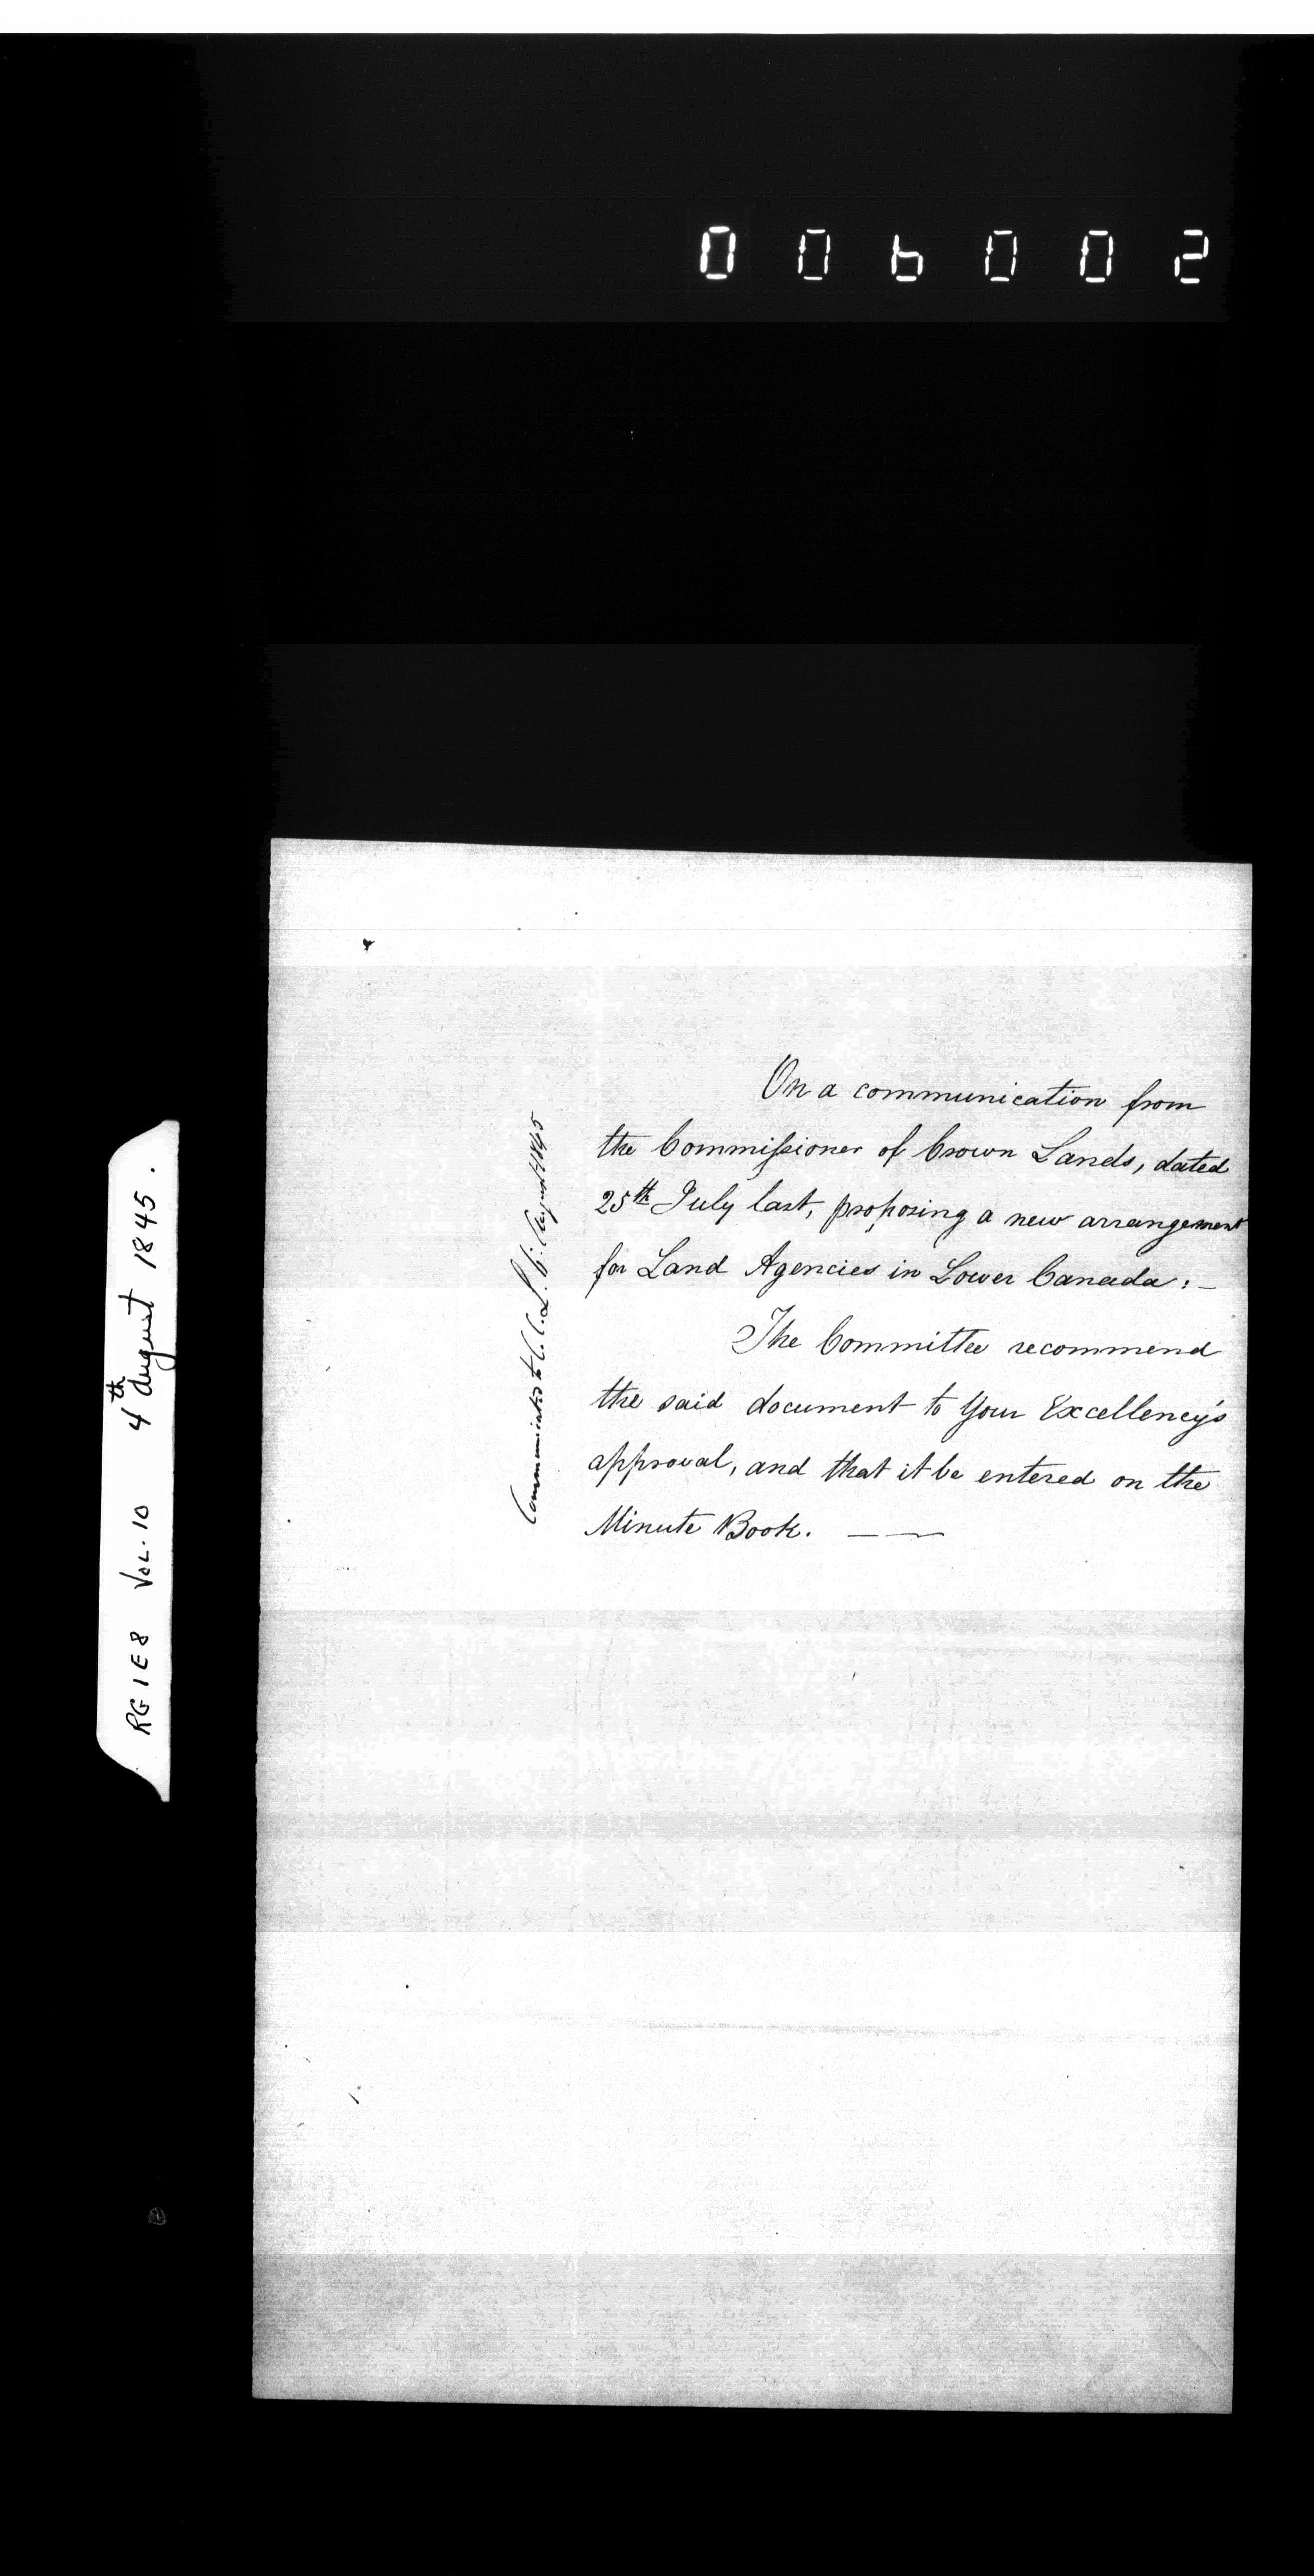 006002
RG 1 E 8 VOL. 10 4th August 1845.
Communicated to C. C. L. 6: August 1845
On a communication from
the Commissioner of Crown Lands, dated
25th July last, proposing a new arrangement
for Land Agencies in Lower Canada: –
The Committee recommend
the said document to Your Excellency's
approval, and that it be entered on the
Minute Book. — —